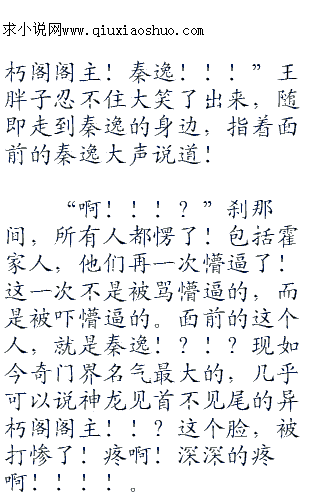 求小说网www.qiuxiaoshuo.com
朽阁阁主！秦逸！！！”王
胖子忍不住大笑了出来，随
即走到秦逸的身边，指着面
前的秦逸大声说道！
“啊！！！？”刹那
间，所有人都愣了！包括霍
家人，他们再一次懵逼了！
这一次不是被骂懵逼的，而
是被吓懵逼的。面前的这个
人，就是秦逸！？！？现如
今奇门界名气最大的，几乎
可以说神龙见首不见尾的异
朽阁阁主！！？这个脸，被
打惨了！疼啊！深深的疼
啊！！！！。